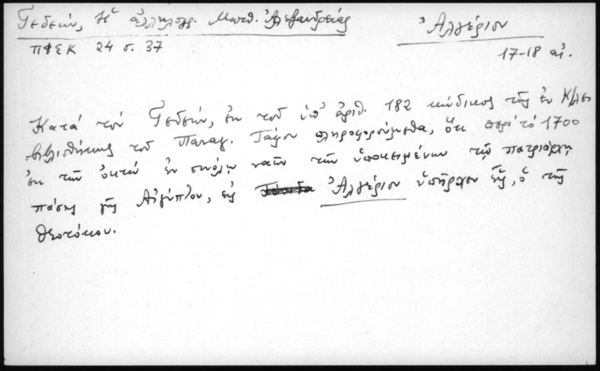 Γεδεών, Ἡ ἀλληλογρ. Ματθ. Ἀλεξανδρείας
Ἀλγέριον
ΠΦΣΚ 24 σ. 37
17-18 αἰ.
Κατά τόν Γεδεών, ἐκ τοῦ ὑπ' ἀριθ. 182 κώδικος τῆς ἐν Κ/πόλει
βιβλιοθήκης τοῦ Παναγ. Τάφου πληροφορούμεθα, ὅτι περί τό 1700
ἐκ τῶν ὀκτώ ἐν συνόλῳ ναῶν τῶν ὑποκειμένων τῷ πατριάρχῃ
πάσης γῆς Αἰγύπτου, εἰς Ἀλγέριον ὑπῆρχεν εἷς, ὁ τῆς
Θεοτόκου.